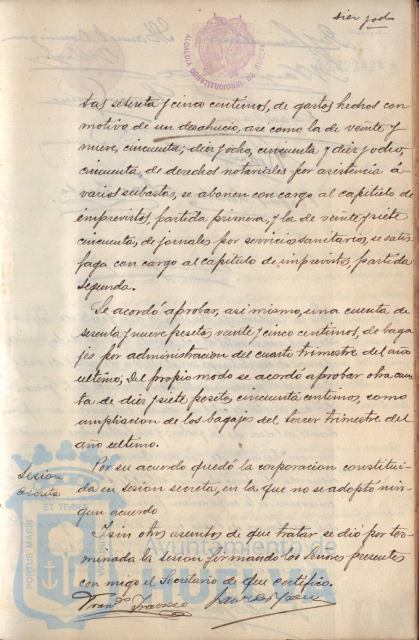 diez y ocho
ALCALDIA CONSTITUCIONAL DE HUELVA
tas setenta y cinco centimos, de gastos hechos con
motivo de un desahucio, asi como la de veinte y
nueve, cincuenta; diez y ocho, cincuenta y diez y ocho,
cincuenta, de derechos notariales por asistencia á
varias subastas, se abonen con cargo al capitulo de
imprevistos, partida primera, y la de veinte y siete
cincuenta, de jornales por servicios sanitarios, se satis-
faga con cargo al capitulo de imprevistos, partida
segunda.
Se acordó aprobar, asi mismo, una cuenta de
sesenta y nueve pesetas veinte y cinco centimos, de baga
jes por administracion del cuarto trimestre del año
ultimo; Del propio modo se acordó aprobar otra cuen
ta de diez y siete pesetas, cincuenta centimos, como
ampliacion de los bagajes del tercer trimestre del
año ultimo.
Sesion
secreta
Por su acuerdo quedó la corporacion constitui-
da en sesion secreta, en la que no se adoptó nin-
gun acuerdo
Y sin otros asuntos de que tratar se dió por ter-
minada la sesion firmando los Señores presentes
con migo el Secretario de que certifico.
PORTUS MARIS ET TERRAE
Ayuntamiento de
HUELVA